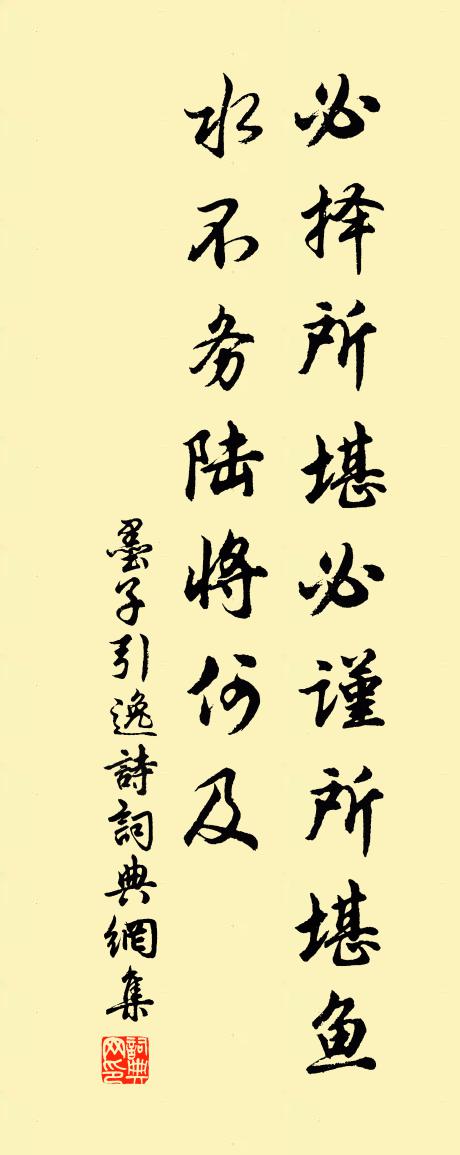 必择所堪必谨所堪鱼
水不务陆将何及
墨子引逸詩詞典網集
詞典网印